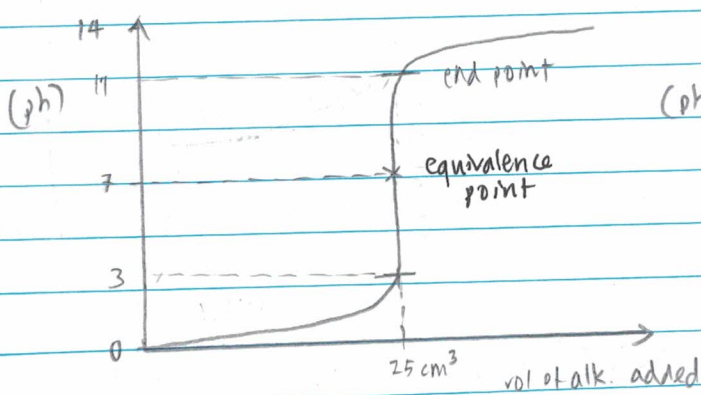 14
(ph)
11
end point
(ph
equivalence
point
7
3
0
25 cm³
vol of alk. added